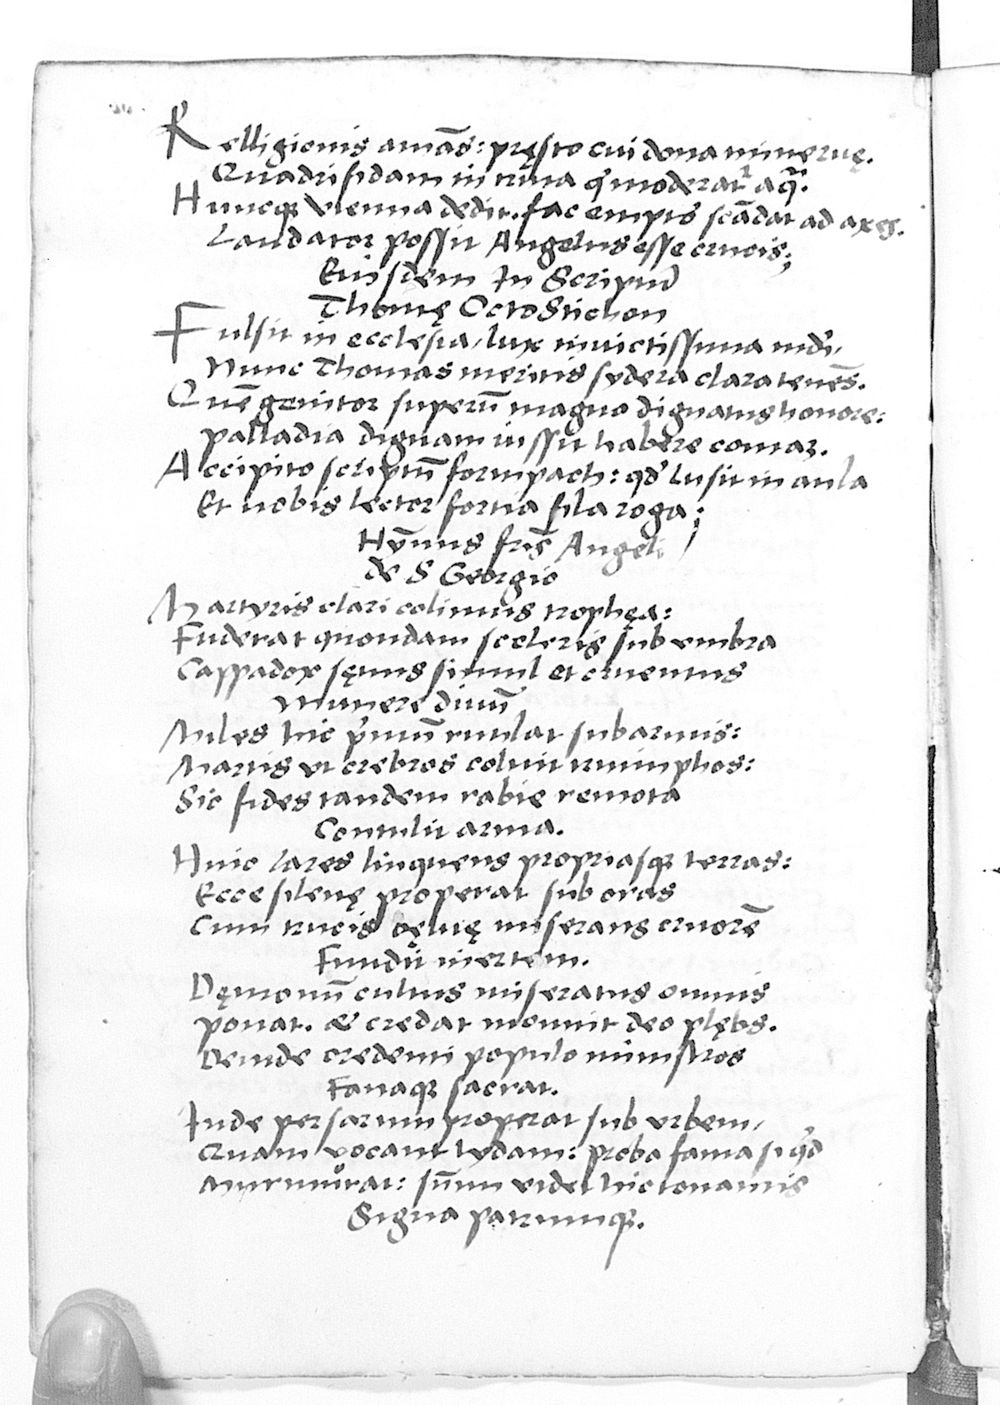 Relligionis amās: pręsto cui dona minervę.
Quadrifidam in trina q̄ moderat^r aq̄.
Huncqȝ vienna dedit. fac empts scādat ad axes.
Laudator possit Angelus esse crucis;
Eiusdem In Scriptū
Thomę Octostichon
Fulsit in ecclesia, lux invictissima mdi,
Nunc Thomas meritis sydera clara tenēs.
Quē genitor superū magno dignatus honore:
palladia dignam iussit habere comaȝ.
Accipito scriptū formpach: qd' lusit in aula
Et nobis lector fortia fila roga;
Hȳnus fris̄ Angeli
de S Georgio
Martyris clari colimus trophęa:
Fuderat quondam sceleris sub umbra
Cappadox sęuus simul et cruentus
Munere diuū
Miles hic primū rutilat sub armis:
Martis vt crebros coluit triumphos:
Sic fides tandem rabie remota
Contulit arma.
Huic lares linquens propriasqȝ terras:
Ecce silenę properat sub oras
Cum trucis bęluę miserans cruorē
Fundit inertem.
Dęmonū cultus miseratus omnis
ponat. & credat monuit deo plębs.
Deinde credenti populo ministros
Fanaqȝ sacrat.
Inde persarum properat sub vrbem,
Quam vocant lydam: proba fama si qd
Murmurat: sūmi videt hic tonantis
Signa patrumqȝ.